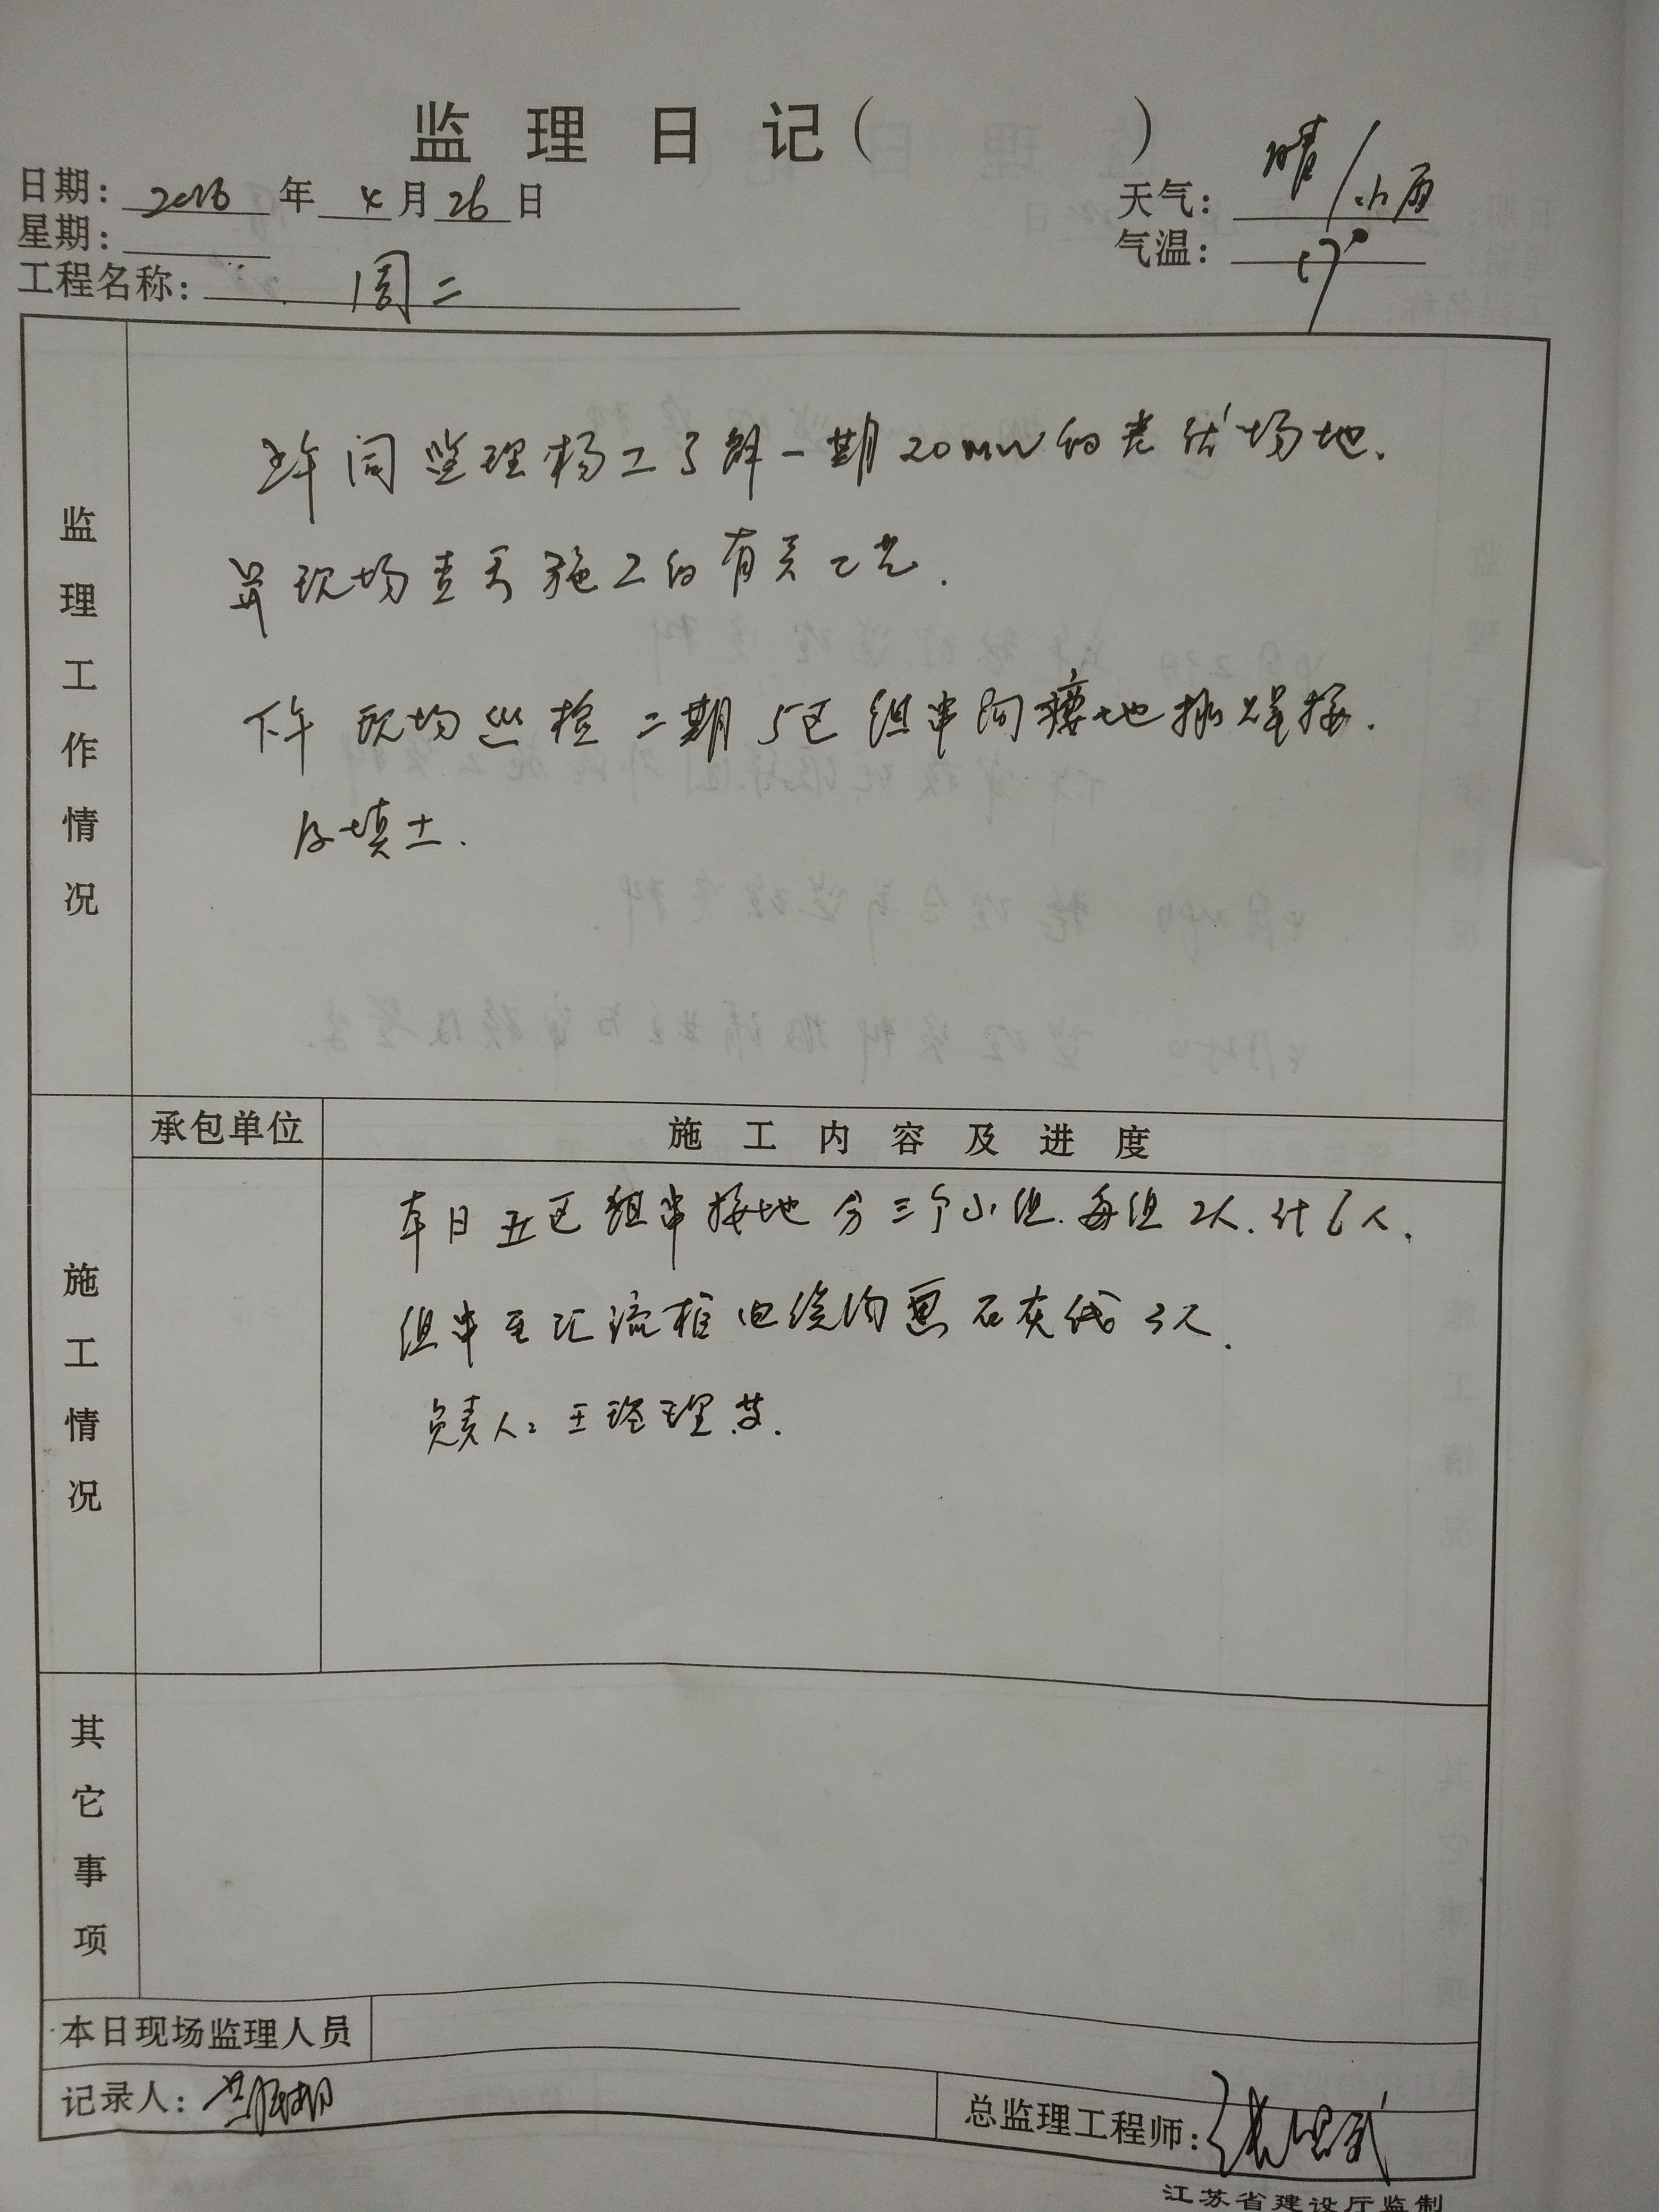 监理日记（ ）
日期：2016年4月26日
天气：晴/小雨
星期：
气温：17°
工程名称：周二
监理工作情况
上午同监理杨工了解一期20MW的光伏场地.
并现场查看施工的有关工艺.
下午 现场巡检 二期 5区 组串间接地扁焊接.
及填土.
承包单位
施工内容及进度
施工情况
本日五区组串接地分三个小组.每组2人.计6人.
组串至汇流柜电缆沟画石灰线3人.
负责人：王经理
其它事项
本日现场监理人员
记录人：
总监理工程师：
江苏省建设厅监制